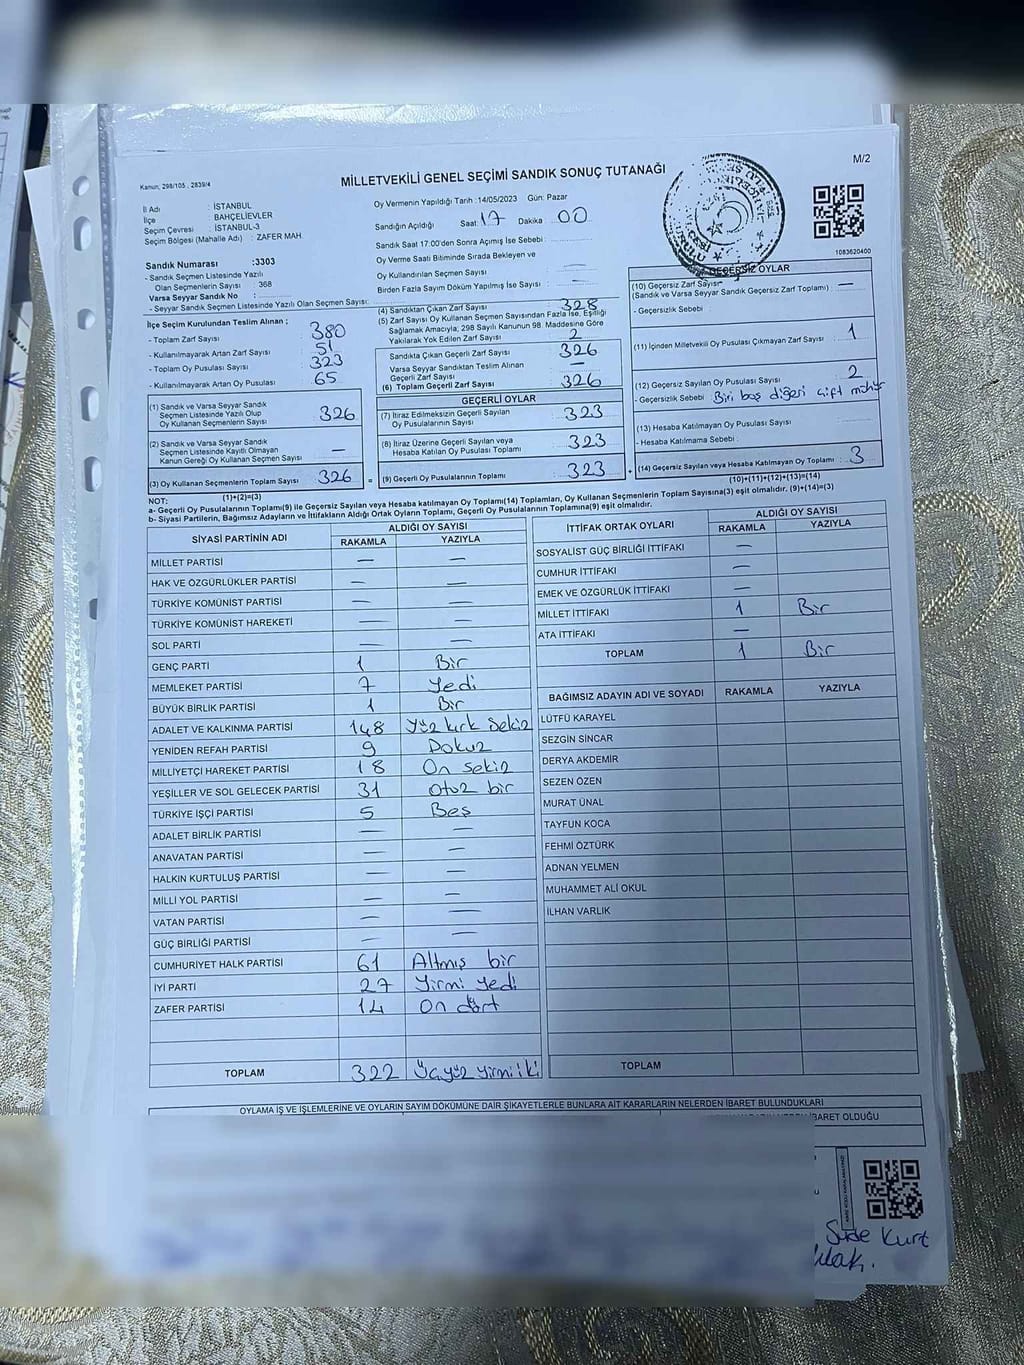 M/2
Kanun, 298/105 , 2839/4
MİLLETVEKİLİ GENEL SEÇİMİ SANDIK SONUÇ TUTANAĞI
İl Adı : İSTANBUL
İlçe : BAHÇELİEVLER
Seçim Çevresi : İSTANBUL-3
Seçim Bölgesi (Mahalle Adı) : ZAFER MAH.
Sandık Numarası :3303
- Sandık Seçmen Listesinde Yazılı
Olan Seçmenlerin Sayısı : 368
Varsa Seyyar Sandık No :
- Seyyar Sandık Seçmen Listesinde Yazılı Olan Seçmen Sayısı:
Oy Vermenin Yapıldığı Tarih :14/05/2023 Gün: Pazar
Sandığın Açıldığı Saat 17 Dakika : 00
Sandık Saat 17:00'den Sonra Açımış İse Sebebi :
Oy Verme Saati Bitiminde Sırada Bekleyen ve
Oy Kullandırılan Seçmen Sayısı : —
Birden Fazla Sayım Döküm Yapılmış İse Sayısı : —
1083620400
İlçe Seçim Kurulundan Teslim Alınan ;
- Toplam Zarf Sayısı : 380
- Kullanılmayarak Artan Zarf Sayısı : 51
- Toplam Oy Pusulası Sayısı : 323
- Kullanılmayarak Artan Oy Pusulası : 65
(1) Sandık ve Varsa Seyyar Sandık
Seçmen Listesinde Yazılı Olup
Oy Kullanan Seçmenlerin Sayısı : 326
(2) Sandık ve Varsa Seyyar Sandık
Seçmen Listesinde Kayıtlı Olmayan
Kanun Gereği Oy Kullanan Seçmen Sayısı : —
(3) Oy Kullanan Seçmenlerin Toplam Sayısı : 326
(1)+(2)=(3)
(4) Sandıktan Çıkan Zarf Sayısı : 328
(5) Zarf Sayısı Oy Kullanan Seçmen Sayısından Fazla İse, Eşitliği
Sağlamak Amacıyla; 298 Sayılı Kanunun 98. Maddesine Göre
Yakılarak Yok Edilen Zarf Sayısı : 2
Sandıkta Çıkan Geçerli Zarf Sayısı : 326
Varsa Seyyar Sandıktan Teslim Alınan
Geçerli Zarf Sayısı : —
(6) Toplam Geçerli Zarf Sayısı : 326
GEÇERLİ OYLAR
(7) İtiraz Edilmeksizin Geçerli Sayılan
Oy Pusulalarının Sayısı : 323
(8) İtiraz Üzerine Geçerli Sayılan veya
Hesaba Katılan Oy Pusulası Toplamı : 323
(9) Geçerli Oy Pusulalarının Toplamı : 323
GEÇERSİZ OYLAR
(10) Geçersiz Zarf Sayısı
(Sandık ve Varsa Seyyar Sandık Geçersiz Zarf Toplamı) : —
- Geçersizlik Sebebi :
(11) İçinden Milletvekili Oy Pusulası Çıkmayan Zarf Sayısı : 1
(12) Geçersiz Sayılan Oy Pusulası Sayısı : 2
- Geçersizlik Sebebi : Biri boş diğeri çift mühür
(13) Hesaba Katılmayan Oy Pusulası Sayısı :
- Hesaba Katılmama Sebebi :
(14) Geçersiz Sayılan veya Hesaba Katılmayan Oy Toplamı : 3
(10)+(11)+(12)+(13)=(14)
NOT:
a- Geçerli Oy Pusulalarının Toplamı(9) ile Geçersiz Sayılan veya Hesaba katılmayan Oy Toplamı(14) Toplamları, Oy Kullanan Seçmenlerin Toplam Sayısına(3) eşit olmalıdır. (9)+(14)=(3)
b- Siyasi Partilerin, Bağımsız Adayların ve İttifakların Aldığı Ortak Oyların Toplamı, Geçerli Oy Pusulalarının Toplamına(9) eşit olmalıdır.
SİYASİ PARTİNİN ADI ALDIĞI OY SAYISI
RAKAMLA YAZIYLA
MİLLET PARTİSİ — —
HAK VE ÖZGÜRLÜKLER PARTİSİ — —
TÜRKİYE KOMÜNİST PARTİSİ — —
TÜRKİYE KOMÜNİST HAREKETİ — —
SOL PARTİ — —
GENÇ PARTİ 1 Bir
MEMLEKET PARTİSİ 7 Yedi
BÜYÜK BİRLİK PARTİSİ 1 Bir
ADALET VE KALKINMA PARTİSİ 148 Yüz kırk sekiz
YENİDEN REFAH PARTİSİ 9 Dokuz
MİLLİYETÇİ HAREKET PARTİSİ 18 On sekiz
YEŞİLLER VE SOL GELECEK PARTİSİ 31 otuz bir
TÜRKİYE İŞÇİ PARTİSİ 5 Beş
ADALET BİRLİK PARTİSİ — —
ANAVATAN PARTİSİ — —
HALKIN KURTULUŞ PARTİSİ — —
MİLLİ YOL PARTİSİ — —
VATAN PARTİSİ — —
GÜÇ BİRLİĞİ PARTİSİ — —
CUMHURİYET HALK PARTİSİ 61 Altmış bir
İYİ PARTİ 27 Yirmi yedi
ZAFER PARTİSİ 14 On dört
TOPLAM 322 Üçyüz yirmi iki
İTTİFAK ORTAK OYLARI ALDIĞI OY SAYISI
RAKAMLA YAZIYLA
SOSYALİST GÜÇ BİRLİĞİ İTTİFAKI —
CUMHUR İTTİFAKI —
EMEK VE ÖZGÜRLÜK İTTİFAKI —
MİLLET İTTİFAKI 1 Bir
ATA İTTİFAKI —
TOPLAM 1 Bir
BAĞIMSIZ ADAYIN ADI VE SOYADI RAKAMLA YAZIYLA
LÜTFÜ KARAYEL
SEZGİN SİNCAR
DERYA AKDEMİR
SEZEN ÖZEN
MURAT ÜNAL
TAYFUN KOCA
FEHMİ ÖZTÜRK
ADNAN YELMEN
MUHAMMET ALİ OKUL
İLHAN VARLIK
TOPLAM
OYLAMA İŞ VE İŞLEMLERİNE VE OYLARIN SAYIM DÖKÜMÜNE DAİR ŞİKAYETLERLE BUNLARA AİT KARARLARIN NELERDEN İBARET BULUNDUKLARI
İBARET OLDUĞU
Sude Kurt